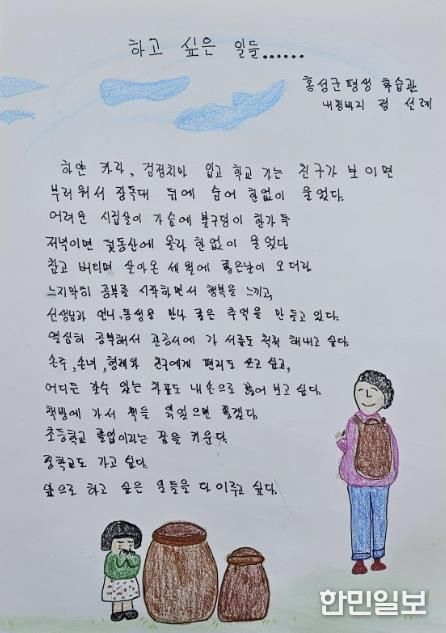 하고 싶은 일들......
홍성군 평생 학습관
내포반지 정 선례
하얀 카라, 검정치마 입고 학교 가는 친구가 보이면
부러워서 장독대 뒤에 숨어 한없이 울었다.
어려운 시집살이 가슴에 불구덩이 한가득
저녁이면 뒷동산에 올라 한없이 울었다
참고 버티며 살아온 세월에 좋은날이 오더라
느지막히 공부를 시작하면서 행복을 느끼고,
선생님과 언니,동생을 만나 좋은 추억을 만들고 있다.
열심히 공부해서 관공서에 가 서류도 척척 해내고 싶다.
손주,손녀,형제와 친구에게 편지도 쓰고 싶고,
어디든 갈수 있는 차표도 내 손으로 끊어 보고 싶다.
책방에 가서 책을 읽었으면 좋겠다.
초등학교 졸업이라는 꿈을 키운다.
중학교도 가고 싶다.
앞으로 하고 싶은 일들을 다 이루고 싶다.
한민일보